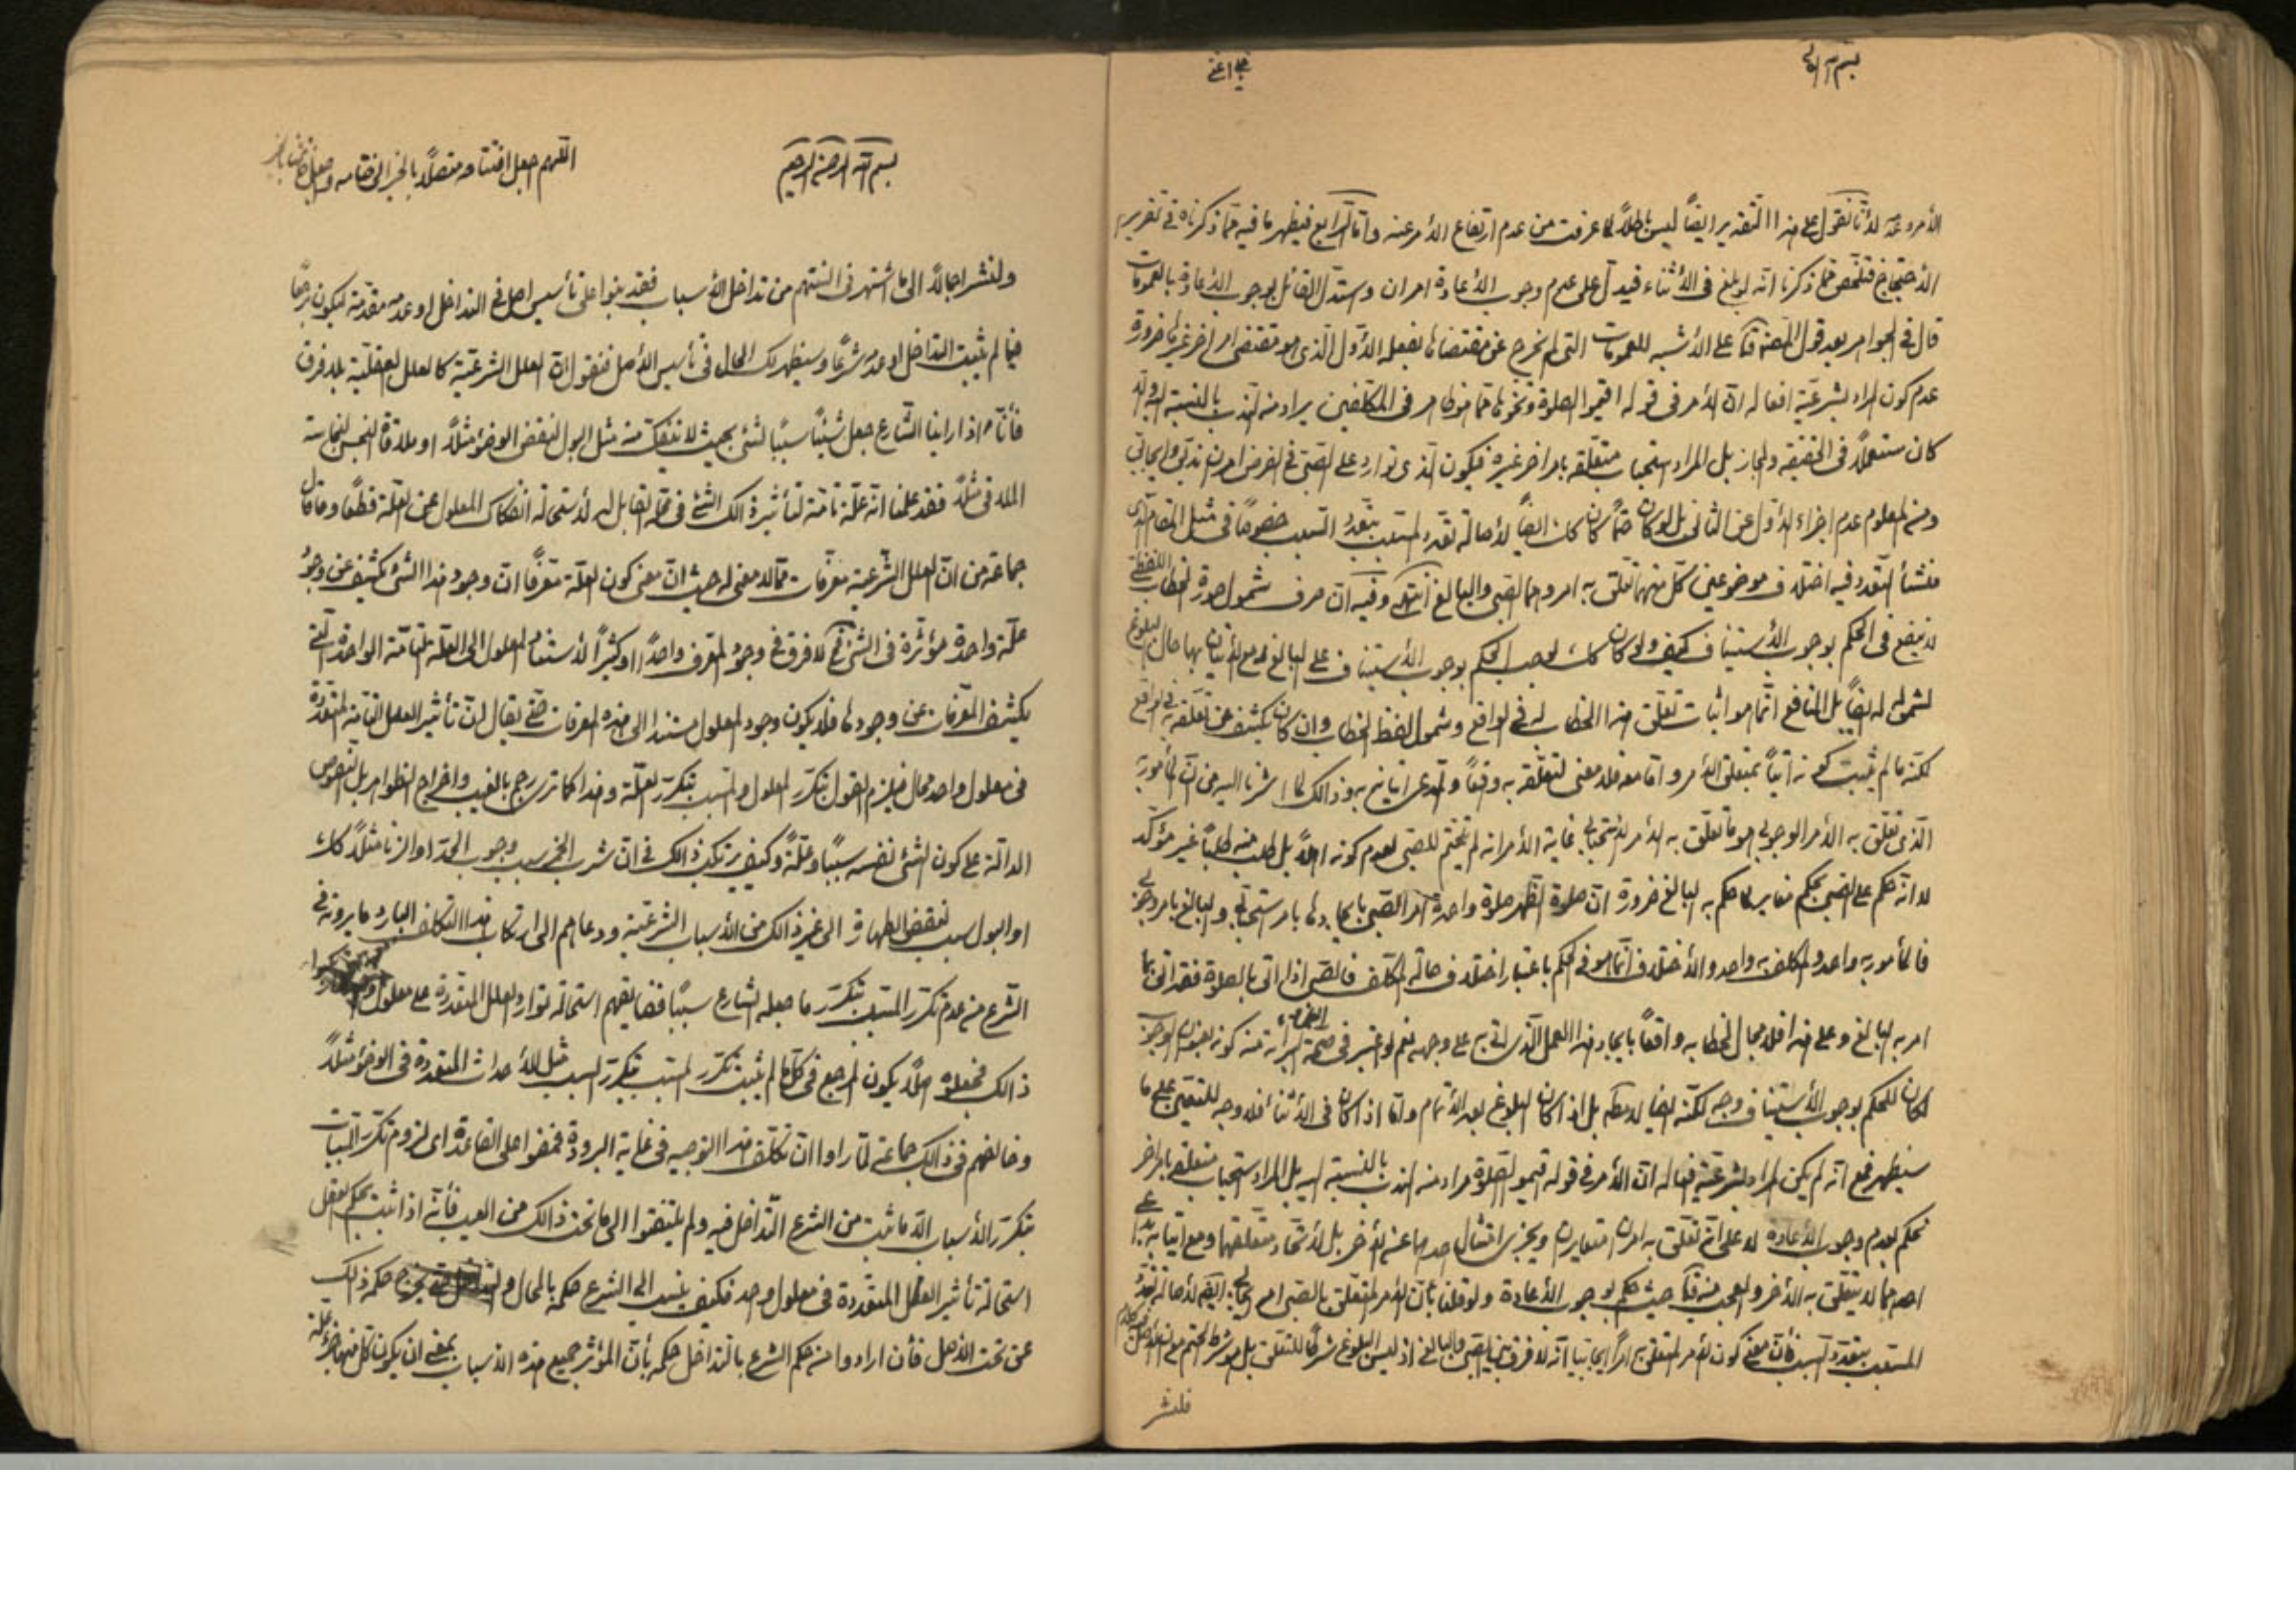 بسم الله
الأمر وعدمه لأنا نقول على هذا التقدير ايضاً ليس باطلاً لما عرفت من عدم ارتفاع الأمر عنه واما الرابع فيظهر ما فيه مما ذكرناه في تقرير
الأحتجاج فتلخص مما ذكرنا انه لو بلغ في الأثناء فيدل على عدم وجوب الأعادة امران واستدل القائل بوجوب الأعادة بالعمومات
قال في الجواهر بعد قول المصنف على الأشبه للعمومات التي لم يخرج عن مقتضاها بفعله الأول الذي هو مقتضى امر اخر غيرها ضرورة
عدم كون المراد بشرعية افعاله ان الأمر في قوله اقيموا الصلوة ونحوها مما هو ظاهر في المكلفين يراد منه الندب بالنسبة اليه وانه
كان مستعملاً في الحقيقة والمجاز بل المراد استحباب متعلقه بامر اخر غيره فيكون الذي توارد على الصبي في الفرض امران ندبي وايجابي
ومن المعلوم عدم اجزاء الأول عن الثاني بل لو كان كان كك ايضاً لأصالة تعدد المسبب بتعدد السبب خصوصاً في مثل المقام الذي
منشأ التعدد فيه اختلاف موضوعين كل منهما تعلق به امر وهما الصبي والبالغ انتهى وفيه ان صرف شمول صورة الخطاب اللفظي
لا ينفع في الحكم بوجوب الأستيناف كيف ولو كان كك لوجب الحكم بوجوب الأستيناف على البالغ مع الأتيان بها حال البلوغ
لشموله له ايضاً بل النافع انما هو اثبات تعلق هذا الخطاب له في الواقع وشمول لفظ الخطاب وان كان يكشف عن تعلقه به في الواقع
لكنه ما لم يثبت كونه آتياً بمتعلق الأمر واما معه فلا معنى لتعلقه به وقعاً وندعي اتيانه به وذالك لما اشرنا اليه من ان المأمور به
الذي تعلق به الأمر الوجوبي هو ما تعلق به الأمر الأستحبابي غاية الأمر انه لم يتحتم للصبي لعدم كونه اهلاً بل طلب منه طلباً غير مؤكد
لا انه حكم على الصبي بحكم مغاير لما حكم به البالغ ضرورة ان صلوة الظهر صلوة واحدة امر الصبي بايجادها بامر استحبابي والبالغ بامر وجوبي
فالمأمور به واحد والمكلف به واحد والأختلاف انما هو في الحكم باعتبار اختلاف حالة المكلف فالصبي اذا اتى بالصلوة فقد اتى بما
امر به البالغ وعلى هذا فلا مجال لخطابه واقعاً بايجاد هذا العمل الذي اتى به على وجهه نعم لو اعتبر في صحة منه كونه بعنوان الوجوب
لكان للحكم بوجوب الأستيناف وجه لكنه ايضاً لا مطلقا بل اذا كان البلوغ بعد الأتمام واما اذا كان في الأثناء فلا وجه للتعيين على ما
سيظهر فمع انه لم يكن المراد بشرعية افعاله ان الأمر في قوله اقيموا الصلوة مراد منه الندب بالنسبة اليه بل المراد استحباب متعلقه بامر اخر
نحكم بعدم وجوب الأعادة لا على انه تعلق به امران متغايران ويجزي امتثال احدهما عن الأخر بل لأتحاد متعلقهما ومع اتيانه به على
احدهما لا يتعلق به الأخر والعجب منه حيث حكم بوجوب الأعادة ولو قلنا بان الأمر المتعلق بالصبي امر ايجابي لأصالة تعدد
المسبب بتعدد السبب فأن معنى كون الأمر المتعلق به امراً ايجابياً انه لا فرق بين الصبي والبالغ اذ ليس البلوغ شرطاً للتعلق بل هو شرط
فلنشر
بسم الله الرحمن الرحيم
اللهم اجعل افتتاحه متصلاً بالخير الى اختتامه
ولنشر اجمالاً الى ما اشتهر في السنتهم من تداخل الأسباب فقد بنوا على تأسيس اصل في التداخل او عدمه مقدمة ليكون مرجعاً
فيما لم يثبت التداخل او عدمه شرعاً وسيظهر لك الحال في تأسيس الأصل فنقول ان العلل الشرعية كالعلل العقلية بلا فرق
فأنا اذا راينا الشارع جعل شيئاً سبباً لشئ بحيث لا ينفك منه مثل البول لنقض الوضوء مثلاً او ملاقاة النجس لنجاسة
الملاقي مثلاً فقد علمنا انه علة تامة لتأثير ذالك الشئ في محله القابل له لأستحالة انفكاك المعلول عن العلة قطعاً وما قال
جماعة من ان العلل الشرعية معرفات مما لا معنى له حيث ان معنى كون العلة معرفاً ان وجود هذا الشئ كشف عن وجود
علة واحدة مؤثرة في الشئ فح لا فرق في وجود المعرف واحداً او كثيراً لأستناد المعلول الى العلة التامة الواحدة التي
يكشف المعرفات عن وجودها فلا يكون وجود المعلول مستنداً الى هذه المعرفات حتى يقال ان تأثير العلل التامة المتعددة
في معلول واحد محال فيلزم القول بتكرر المعلول والمسبب بتكرر العلة وهذا كما ترى رجم بالغيب واخراج لظواهر بل النصوص
الدالة على كون الشئ نفسه سبباً وعلةً وكيف يرتكب ذالك في ان شرب الخمر سبب وجوب الحد او الزنا مثلاً كك
او البول سبب لنقض الطهارة الى غير ذالك من الأسباب الشرعية ودعاهم الى ارتكاب هذا التكلف البارد ما يرونه في
الشرع من عدم تكرر المسبب بتكرر ما جعله الشارع سبباً فضايقهم استحالة توارد العلل المتعددة على معلول
ذالك فجعلوه اصلاً يكون المرجع في كل ما لم يثبت تكرر المسبب بتكرر السبب مثل الأحداث المتعددة في الوضوء مثلاً
وخالفهم في ذالك جماعة لما راوا ان تكلف هذا التوجيه في غاية البرودة فخفضوا على القاعدة اي لزوم تكرر المسببات
بتكرر الأسباب الا ما ثبت من الشرع التداخل فيه ولم يلتفتوا الى ما تحت ذالك من العيب فأنه اذا ثبت بحكم العقل
استحالة تأثير العلل المتعددة في معلول واحد فكيف ينسب الى الشرع حكمه بالمحال حكمه ذالك
عن تحت الأصل فأن ارادوا من حكم الشرع بالتداخل حكمه بأن المؤثر جميع هذه الأسباب بمعنى ان يكون كل منها جزء علة